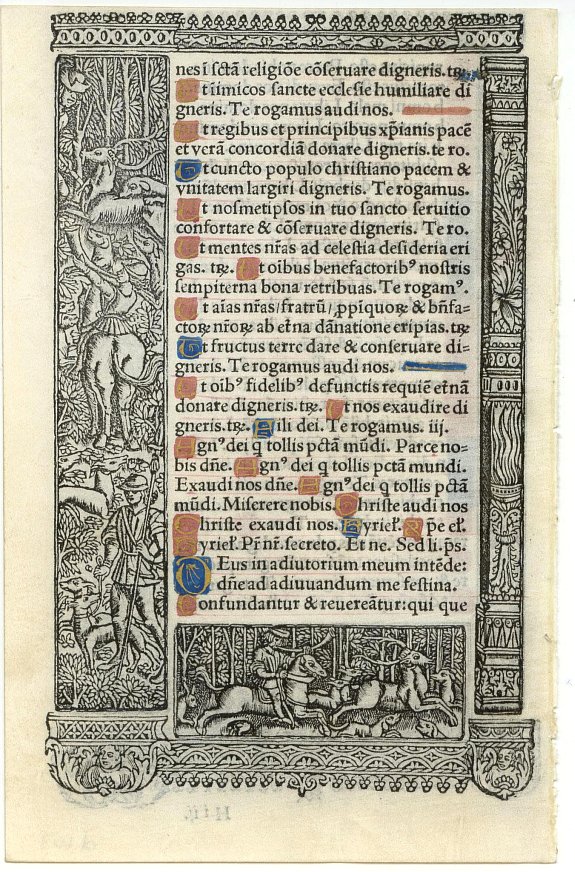 nes i sctā religiōe cōseruare digneris. tꝛꝫ.
Et iimicos sancte ecclesie humiliare di
gneris. Te rogamus audi nos.
Et regibus et principibus xp̄ianis pacē
et verā concordiā donare digneris. te ro.
Et cuncto populo christiano pacem &
vnitatem largiri digneris. Te rogamus.
Et nosmetipsos in tuo sancto seruitio
confortare & cōseruare digneris. Te ro.
Et mentes nr̄as ad celestia desideria eri
gas. tꝛꝫ. Et oibus benefactoribꝰ nostris
sempiterna bona retribuas. Te rogamꝰ.
Et aīas nr̄as/fratrū/ꝓpiquoꝝ & bn̄fa=
ctoꝝ nr̄oꝝ ab et̄na dānatione eripias. tꝛꝫ
Et fructus terre dare & conseruare di=
gneris. Te rogamus audi nos.
Et oibꝰ fidelibꝰ defunctis requiē et̄nā
donare digneris. tꝛꝫ. Et nos exaudire di
gneris. tꝛꝫ. Fili dei. Te rogamus. iij.
Agnꝰ dei q tollis pctā mūdi. Parce no=
bis dn̄e. Agnꝰ dei q tollis pctā mundi.
Exaudi nos dn̄e. Agnꝰ dei q tollis pctā
mūdi. Miserere nobis. Christe audi nos
Christe exaudi nos. Kyrieł. Xpe eł.
Kyrieł. Pr̄ nr̄. secreto. Et ne. Sed li. ps.
DEus in adiutorium meum intēde:
dn̄e ad adiuuandum me festina.
Confundantur & reuereātur: qui que